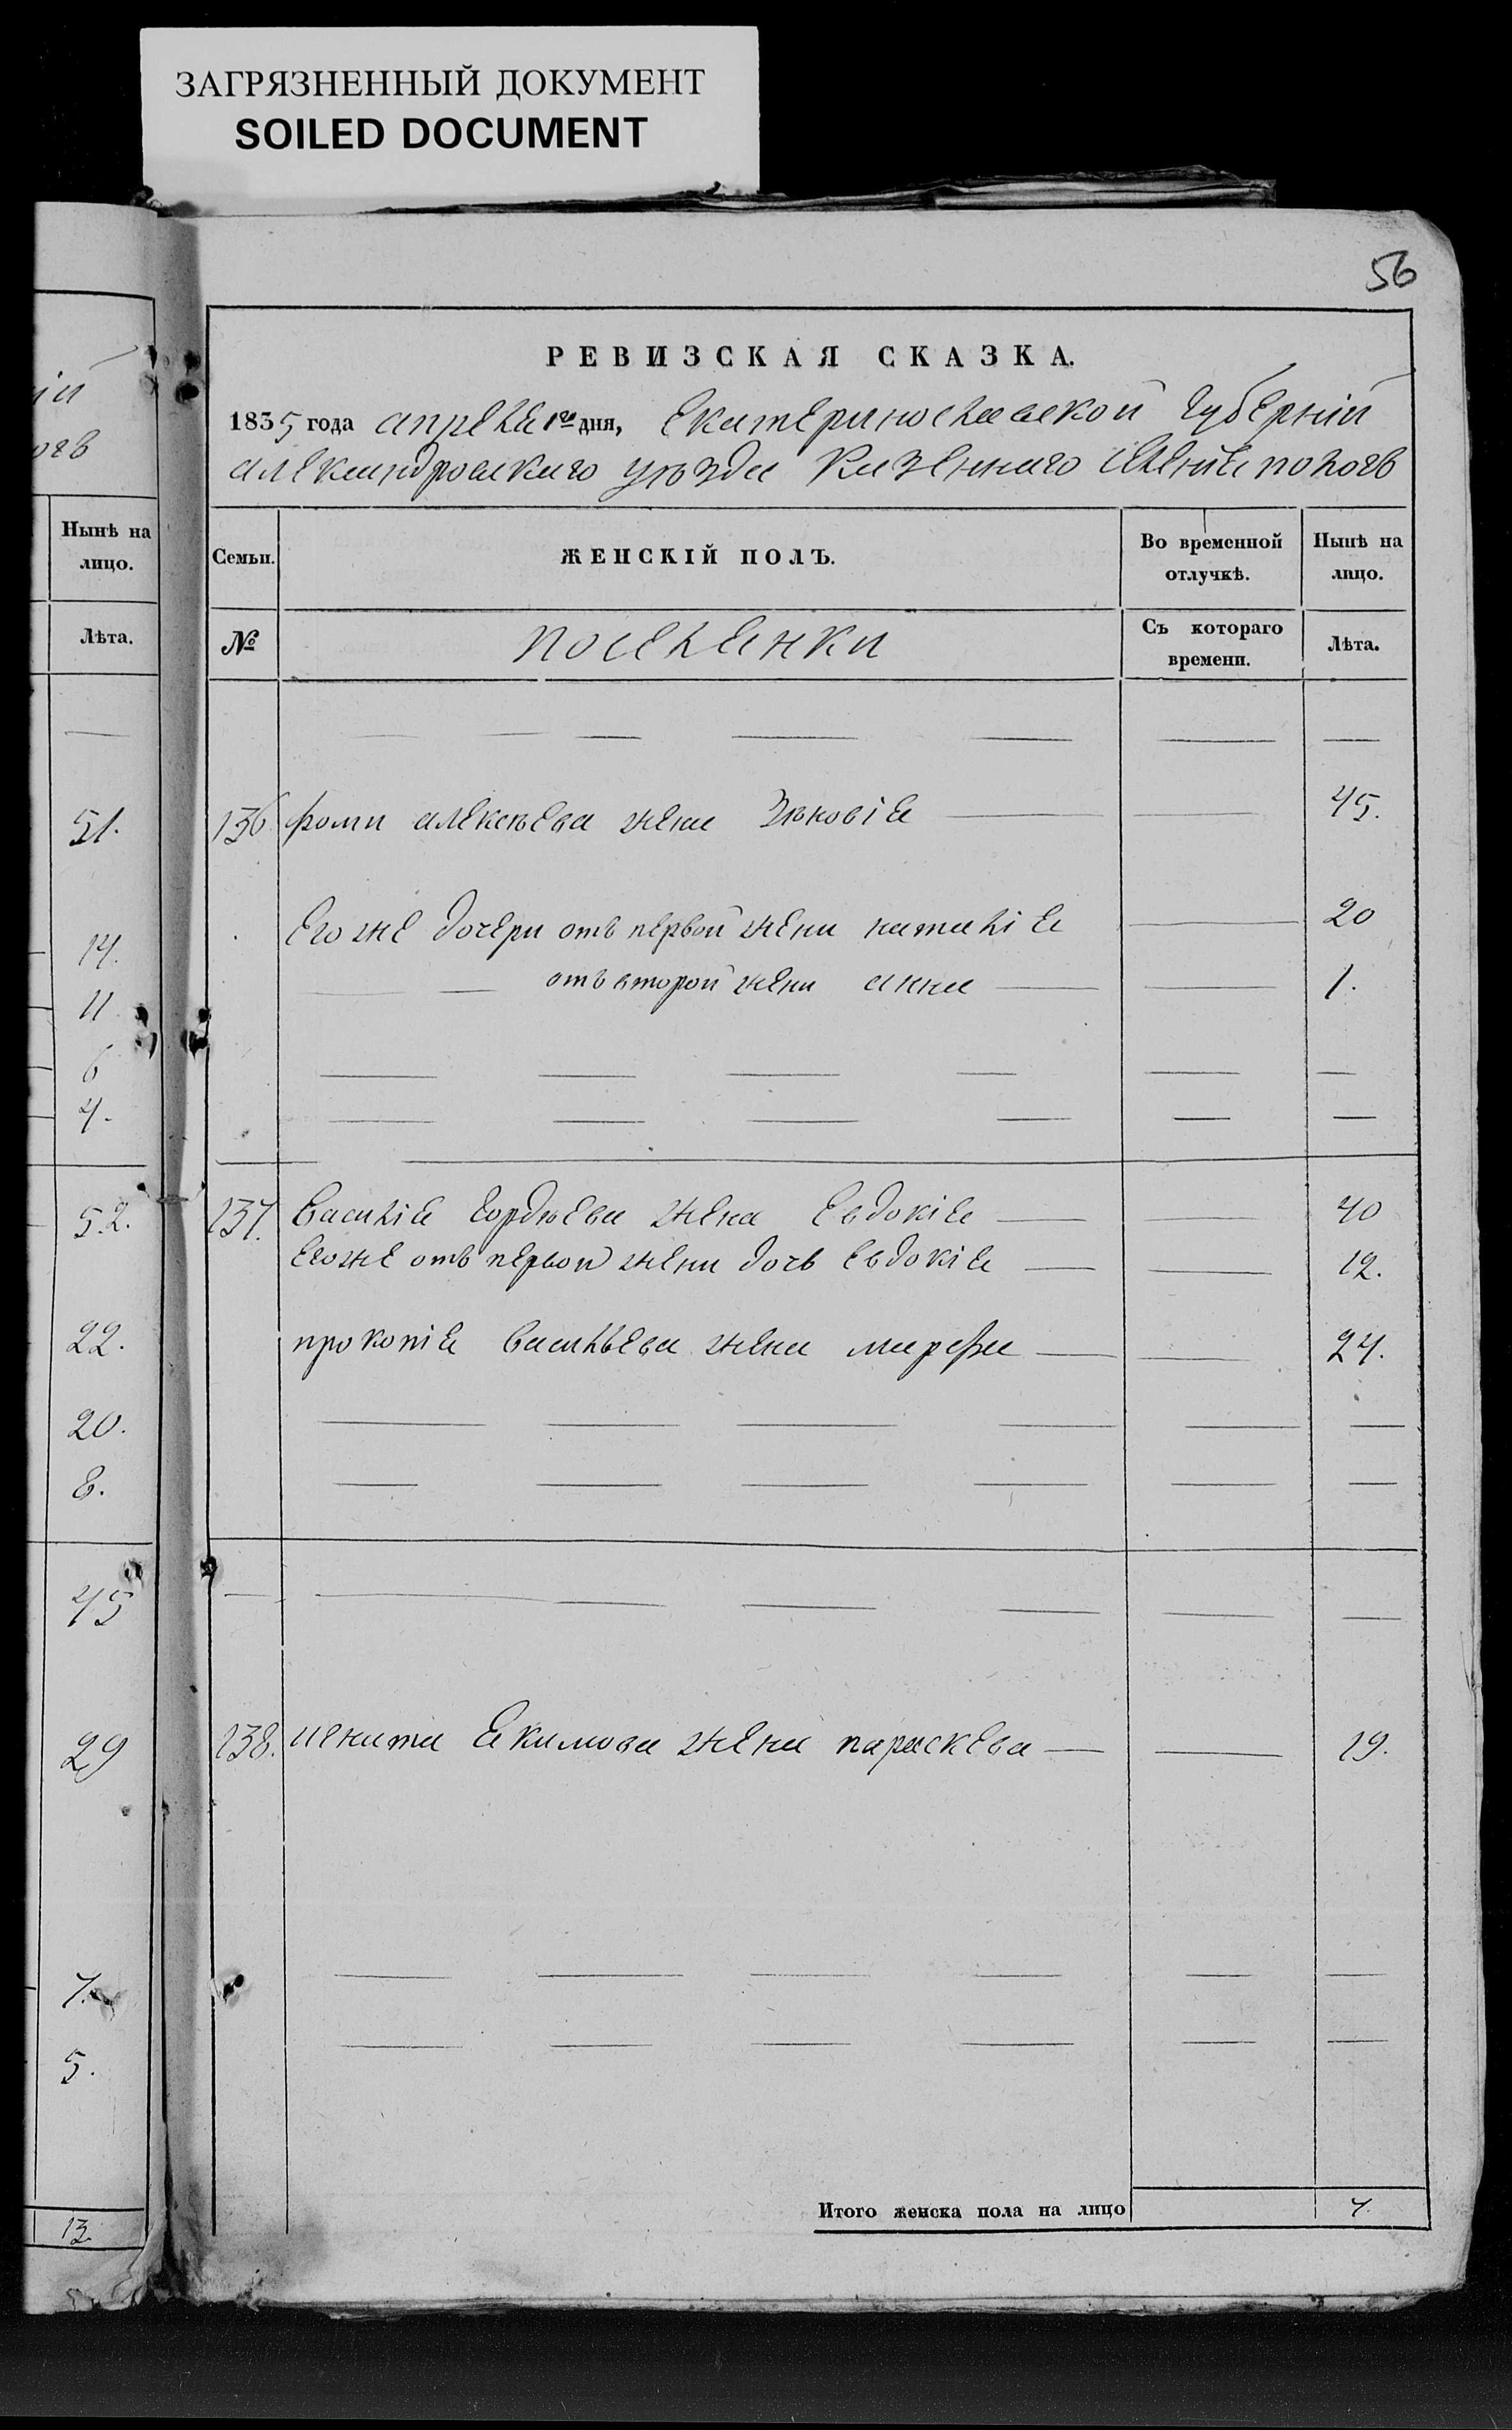 ЗАГРЯЗНЕННЫЙ ДОКУМЕНТ
SOILED DOCUMENT
56
РЕВИЗСКАЯ СКАЗКА.
1835 года апреля 1го дня, Екатеринославской Губерній
александровскаго уѣзда Казеннаго селенія пологъ
Семьи. ЖЕНСКІЙ ПОЛЪ. Во временной отлучкѣ. Нынѣ на лицо.
№ поселянки Съ котораго времени. Лѣта.
136. фоми алексѣева жена Зѣновія 45.
Его же дочери отъ первой жени наталія 20
отъ второй жени анна 1.
137. Василія гордѣева жена Евдокія 40
Его же отъ первой жени дочь Евдокія 12.
прокопія васильева жена марфа 24.
138. игната Якимова жена параскева 19.
Итого женска пола на лицо 7.
ій
огъ
Нынѣ на
лицо.
Лѣта.
51.
14.
11
6
4.
52.
22.
20.
8.
45
29
7.
5.
13.